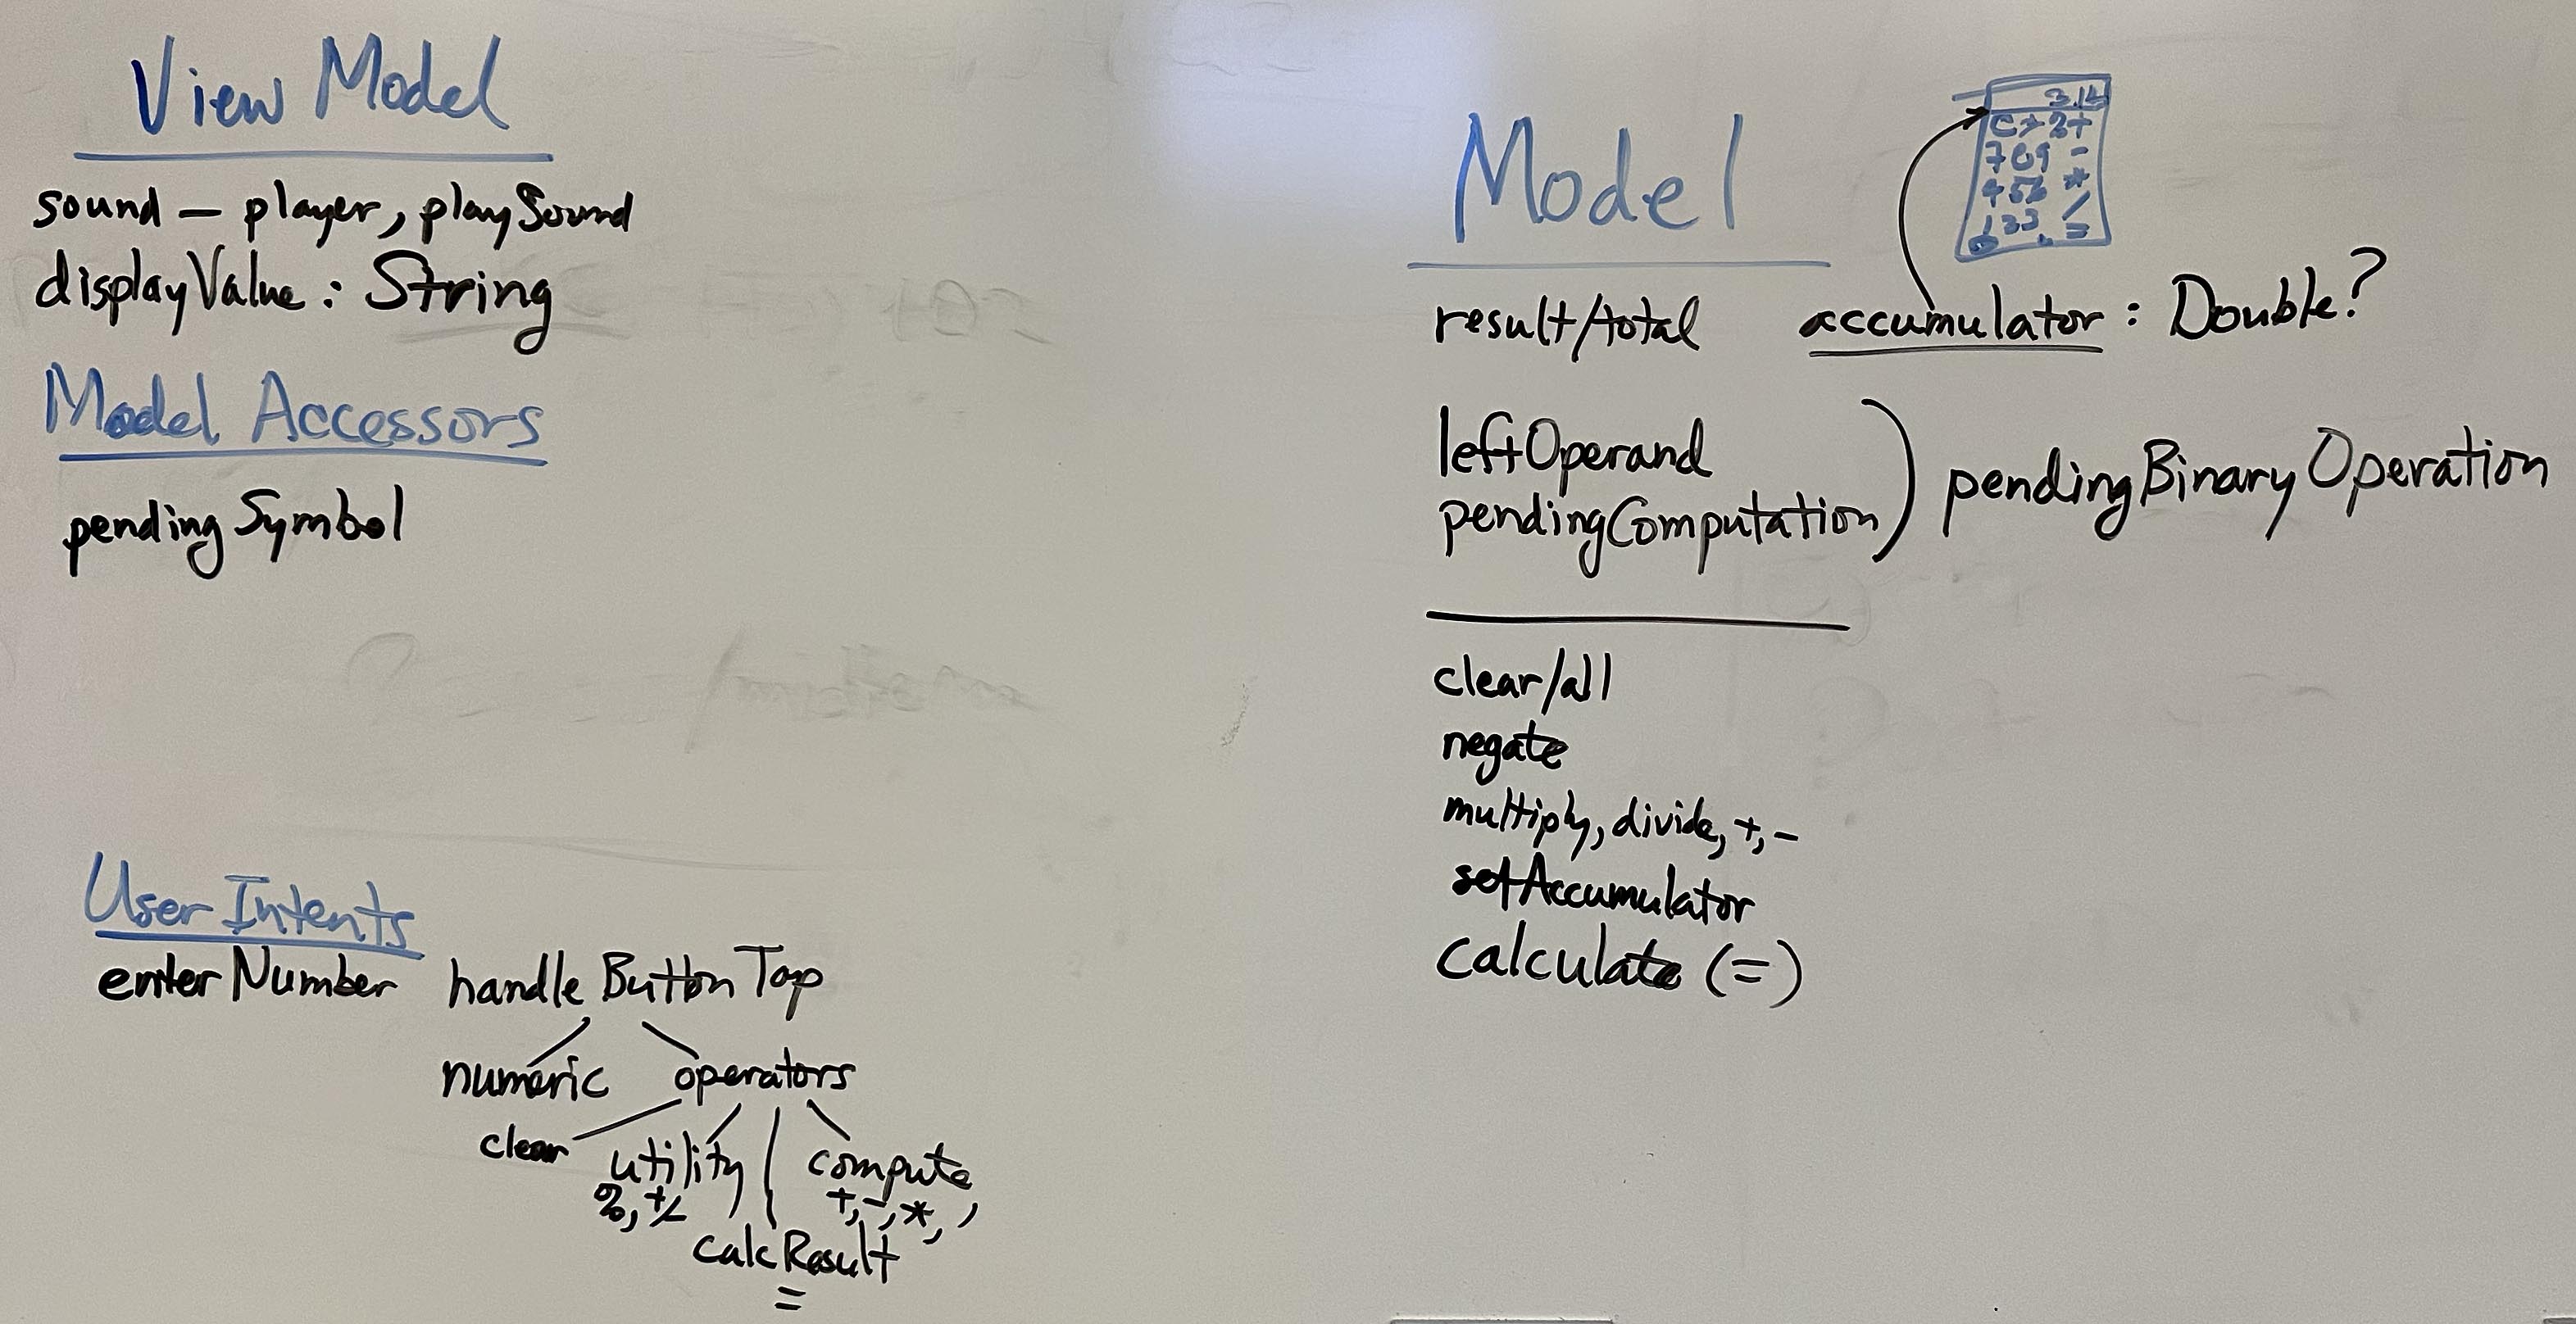 View Model
sound – player, playSound
displayValue : String
Model Accessors
pendingSymbol
User Intents
enterNumber handleButtonTap
numeric operators
clear utility compute
%, +/- +, -, *,
calcResult
=
Model
3.14
7 8 9 -
4 5 6 *
result/total accumulator : Double?
leftOperand
pendingComputation) pendingBinaryOperation
clear/all
negate
multiply, divide, +, -
setAccumulator
calculate (=)